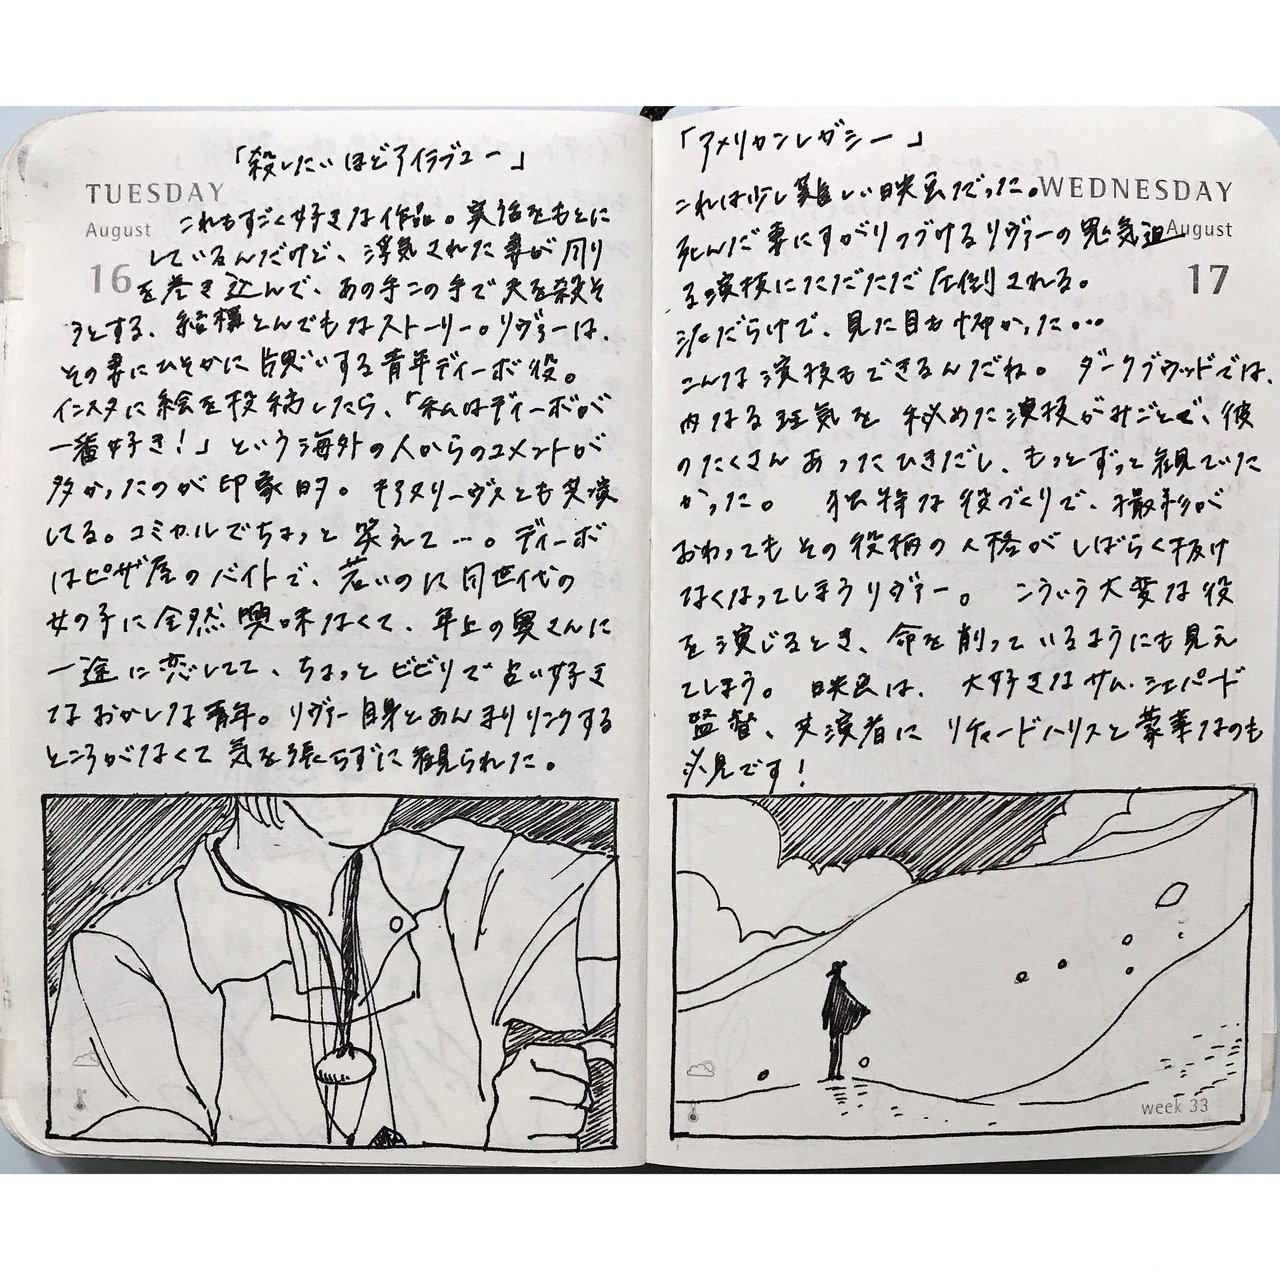 「殺したいほどアイラブユー」
TUESDAY
August
16
これもすごく好きな作品。実話をもとに
しているんだけど、浮気された妻が周り
を巻き込んで、あの手この手で夫を殺そ
うとする、結構とんでもなストーリー。リヴァーは、
その妻にひそかに片思いする青年ディーボ役。
インスタに絵を投稿したら、「私はディーボが
一番好き!」という海外の人からのコメントが
多かったのが印象的。キアヌリーヴスとも共演
してる。コミカルでちょっと笑えて…。ディーボ
はピザ屋のバイトで、若いのに同世代の
女の子に全然興味なくて、年上の奥さんに
一途に恋してて、ちょっとビビりで占い好き
なおかしな青年。リヴァー自身とあんまりリンクする
ところがなくて気を張らずに観られた。
「アメリカンレガシー」
これは少し難しい映画だった。
WEDNESDAY
August
17
死んだ妻にすがりつづけるリヴァーの鬼気迫
る演技にただただ圧倒される。
泥だらけで、見た目も怖かった…
こんな演技もできるんだね。ダークブラッドでは、
内なる狂気を秘めた演技がみごとで、彼
のたくさんあったひきだし、もっとずっと観ていた
かった。独特な役づくりで、撮影が
おわってもその役柄の人格がしばらく抜け
なくなってしまうリヴァー。こういう大変な役
を演じるとき、命を削っているようにも見え
てしまう。映画は、大好きなサム・シェパード
監督、共演者にリチャードハリスと豪華なのも
必見です!
week 33